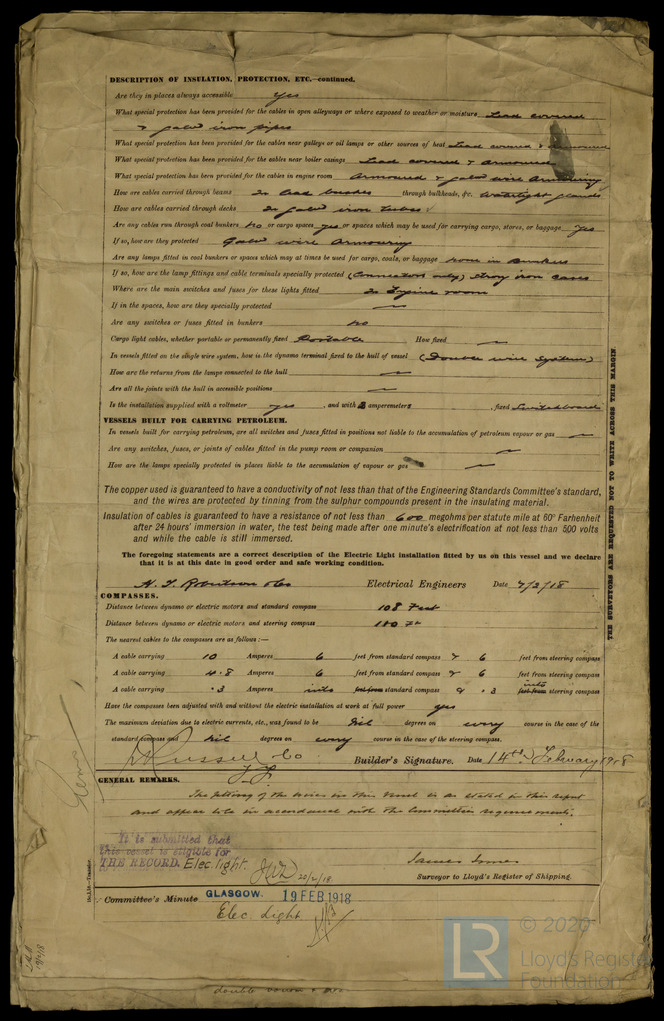 DESCRIPTION OF INSULATION, PROTECTION, ETC.—continued.
Are they in places always accessible yes
What special protection has been provided for the cables in open alleyways or where exposed to weather or moisture Lead covered
& galvd iron pipes
What special protection has been provided for the cables near galleys or oil lamps or other sources of heat Lead covered & armoured
What special protection has been provided for the cables near boiler casings Lead covered & armoured
What special protection has been provided for the cables in engine room Armoured & galvd wire armouring
How are cables carried through beams In lead bushes through bulkheads, &c. Watertight glands
How are cables carried through decks In galvd iron tubes
Are any cables run through coal bunkers no or cargo spaces yes or spaces which may be used for carrying cargo, stores, or baggage yes
If so, how are they protected Galvd wire armouring
Are any lamps fitted in coal bunkers or spaces which may at times be used for cargo, coals, or baggage none in bunkers
If so, how are the lamp fittings and cable terminals specially protected (Connectors only) Strong iron cases
Where are the main switches and fuses for these lights fitted In Engine room
If in the spaces, how are they specially protected —
Are any switches or fuses fitted in bunkers no
Cargo light cables, whether portable or permanently fixed Portable How fixed —
In vessels fitted on the single wire system, how is the dynamo terminal fixed to the hull of vessel (Double wire system)
How are the returns from the lamps connected to the hull —
Are all the joints with the hull in accessible positions —
Is the installation supplied with a voltmeter yes , and with 2 amperemeters , fixed Switchboard
VESSELS BUILT FOR CARRYING PETROLEUM.
In vessels built for carrying petroleum, are all switches and fuses fitted in positions not liable to the accumulation of petroleum vapour or gas —
Are any switches, fuses, or joints of cables fitted in the pump room or companion —
How are the lamps specially protected in places liable to the accumulation of vapour or gas —
The copper used is guaranteed to have a conductivity of not less than that of the Engineering Standards Committee's standard,
and the wires are protected by tinning from the sulphur compounds present in the insulating material.
Insulation of cables is guaranteed to have a resistance of not less than 600 megohms per statute mile at 60° Farhenheit
after 24 hours' immersion in water, the test being made after one minute's electrification at not less than 500 volts
and while the cable is still immersed.
The foregoing statements are a correct description of the Electric Light installation fitted by us on this vessel and we declare
that it is at this date in good order and safe working condition.
Robertson & Co Electrical Engineers Date 7/2/18
COMPASSES.
Distance between dynamo or electric motors and standard compass 108 Feet
Distance between dynamo or electric motors and steering compass 100 Ft
The nearest cables to the compasses are as follows:—
A cable carrying 10 Amperes 6 feet from standard compass & 6 feet from steering compass
A cable carrying 4.8 Amperes 6 feet from standard compass & 6 feet from steering compass
A cable carrying .3 Amperes into feet from standard compass & .3 into feet from steering compass
Have the compasses been adjusted with and without the electric installation at work at full power yes
The maximum deviation due to electric currents, etc., was found to be Nil degrees on every course in the case of the
standard compass and Nil degrees on every course in the case of the steering compass.
Russell & Co Builder's Signature. Date 14th February 1918
GENERAL REMARKS.
The fitting of the wires in this vessel is as stated in this report
and appear to be in accordance with the Committee's requirements.
It is submitted that
this vessel is eligible for
THE RECORD. Elec. light. 20/2/18
James Jones
Surveyor to Lloyd's Register of Shipping.
Committee's Minute GLASGOW. 19 FEB 1918
Elec Light
THE SURVEYORS ARE REQUESTED NOT TO WRITE ACROSS THIS MARGIN.
LR
© 2020
Lloyd's Register
Foundation